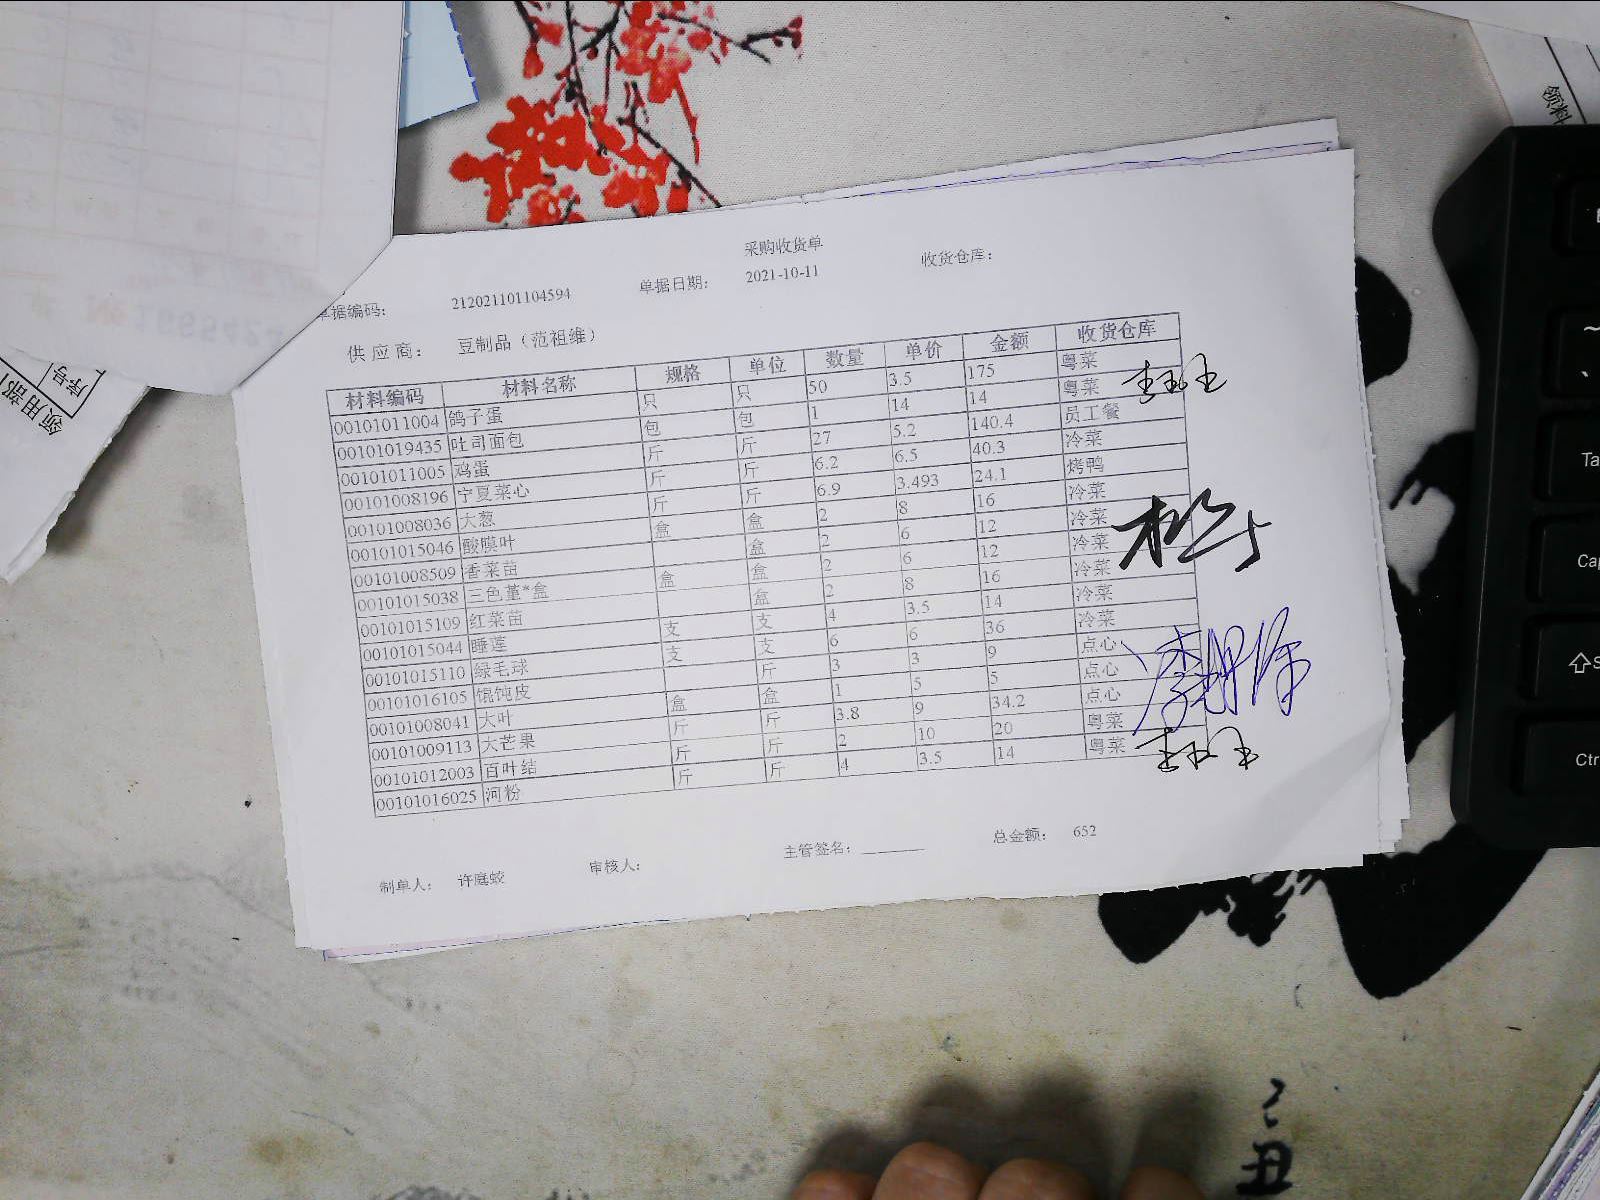 采购收货单
单据编码： 212021101104594 单据日期： 2021-10-11 收货仓库：
供应商： 豆制品（范祖维）
材料编码 材料名称 规格 单位 数量 单价 金额 收货仓库
00101011004 鸽子蛋 只 只 50 3.5 175 粤菜
00101019435 吐司面包 包 包 1 14 14 粤菜
00101011005 鸡蛋 斤 斤 27 5.2 140.4 员工餐
00101008196 宁夏菜心 斤 斤 6.2 6.5 40.3 冷菜
00101008036 大葱 斤 斤 6.9 3.493 24.1 烤鸭
00101015046 酸膜叶 盒 盒 2 8 16 冷菜
00101008509 香菜苗 盒 2 6 12 冷菜
00101015038 三色堇*盒 盒 盒 2 6 12 冷菜
00101015109 红菜苗 盒 2 8 16 冷菜
00101015044 睡莲 支 支 4 3.5 14 冷菜
00101015110 绿毛球 支 支 6 6 36 冷菜
00101016105 馄饨皮 斤 3 3 9 点心
00101008041 大叶 盒 盒 1 5 5 点心
00101009113 大芒果 斤 斤 3.8 9 34.2 点心
00101012003 百叶结 斤 斤 2 10 20 粤菜
00101016025 河粉 斤 斤 4 3.5 14 粤菜
制单人： 许庭蛟 审核人： 主管签名： 总金额： 652
领用部
序号
领料
Ctr
丑